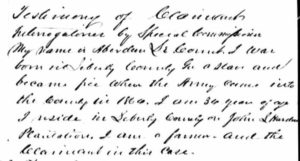 Testimony of Claimant
Interrogatories by Special Commissioner
My name is I was
born in Liberty County Ga a slave and
became free when the Army came into
the County in I am 34 years of age
I reside in Liberty County on John
Plantation, I am a farmer and the
Claimant in this case.